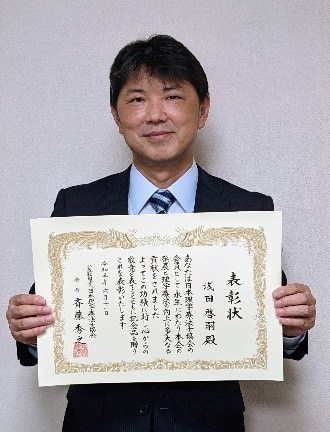 表彰状
浅田啓羽殿
あなたは日本理学療法士協会の
会員として永年にわたり本会の
発展と理学療法の向上に多大なる
貢献をされました
よってこの功績に対し心からの
敬意を表するとともに記念品を贈り
これを表彰いたします
公益社団法人日本理学療法士協会
会長 斉藤秀之